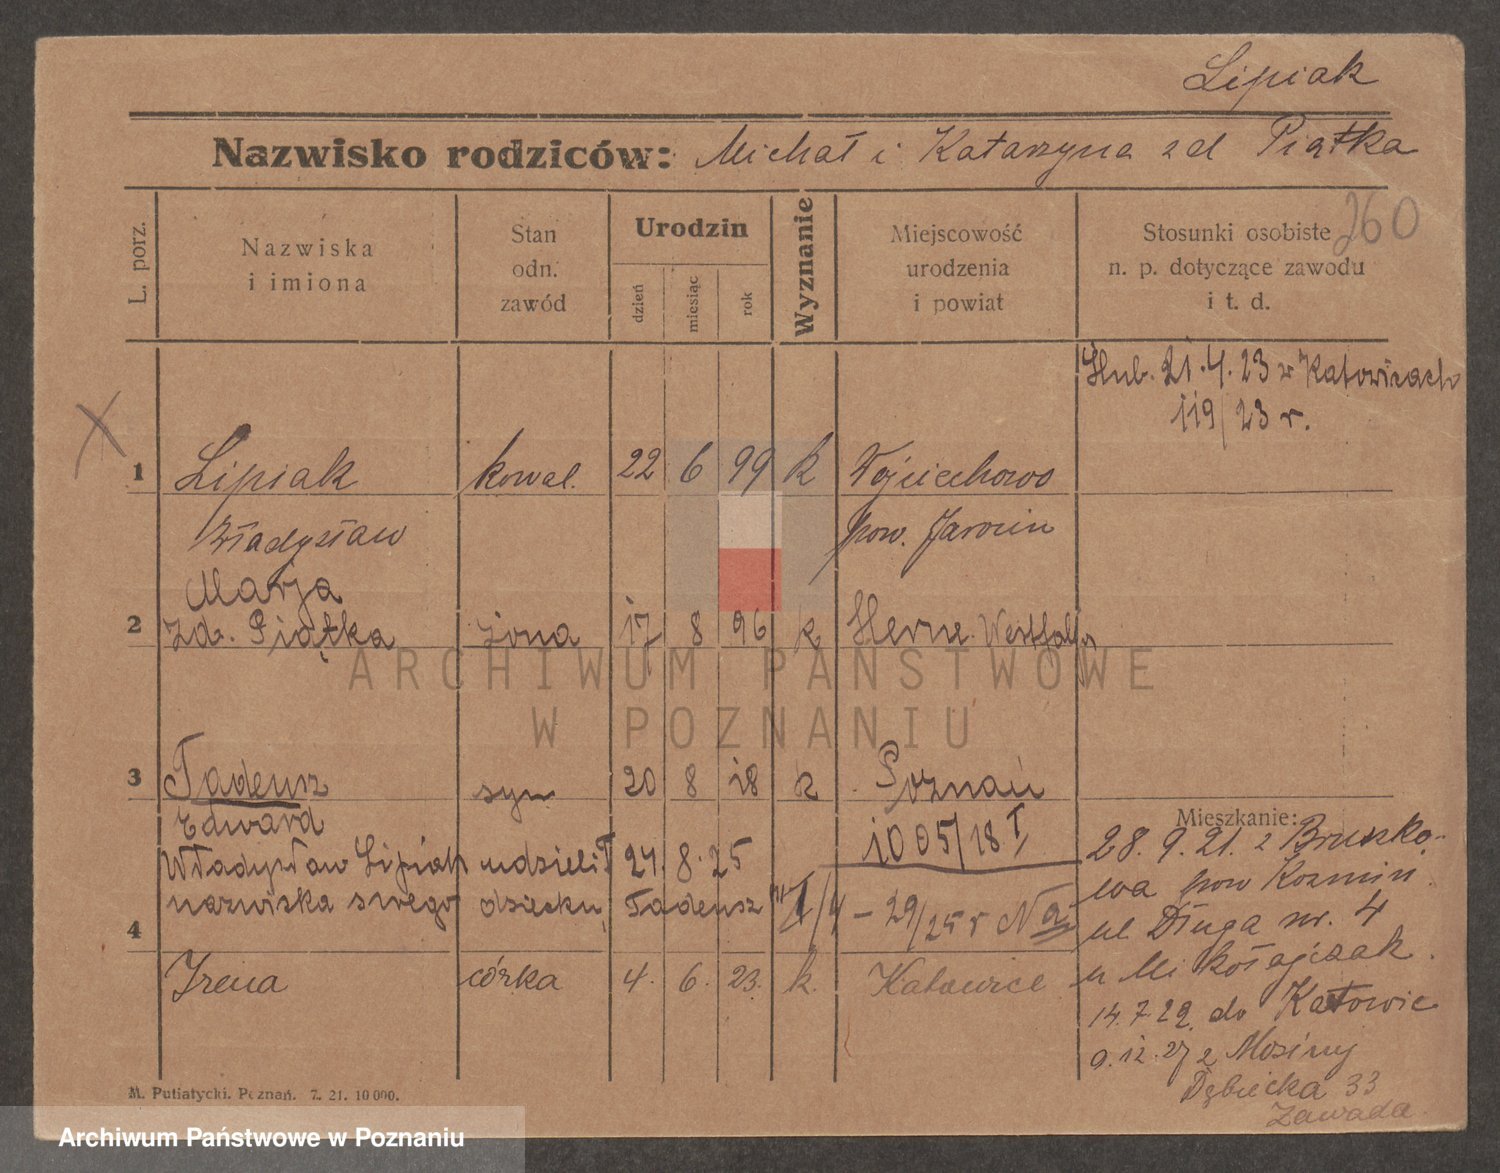 Lipiak
Nazwisko rodziców: Michał i Katarzyna z d Piątka
260
L. porz.
Nazwiska
i imiona
Stan
odn.
zawód
Urodzin
dzień
miesiąc
rok
Wyznanie
Miejscowość
urodzenia
i powiat
Stosunki osobiste
n. p. dotyczące zawodu
i t. d.
Ślub. 21.4.23 w Katowicach
119/23 r.
1 Lipiak kowal. 22 6 99 k Wojciechowo
Władysław pow. Jarocin
Marja
2 zd. Piątka żona 17 8 96 k Herne Westfalja
ARCHIWUM PAŃSTWOWE
W POZNANIU
3 Tadeusz syn 20 8 18 k Poznań
Edward 1005/18 I
Władysław Lipiak udzielił 27. 8. 25
nazwiska swego dziecku Tadeusz
4
/4 - 29/25 r
Irena córka 4. 6. 23. k. Katowice
Mieszkanie:
28. 9. 21. z Bruszko-
wa pow Koźmin.
ul Długa nr. 4
u Mikołajczak.
14.7.22. do Katowic
9.12.27 z Mosiny
Dębiecka 33
Zawada
M. Putiatycki. Poznań. 7. 21. 10 000.
Archiwum Państwowe w Poznaniu